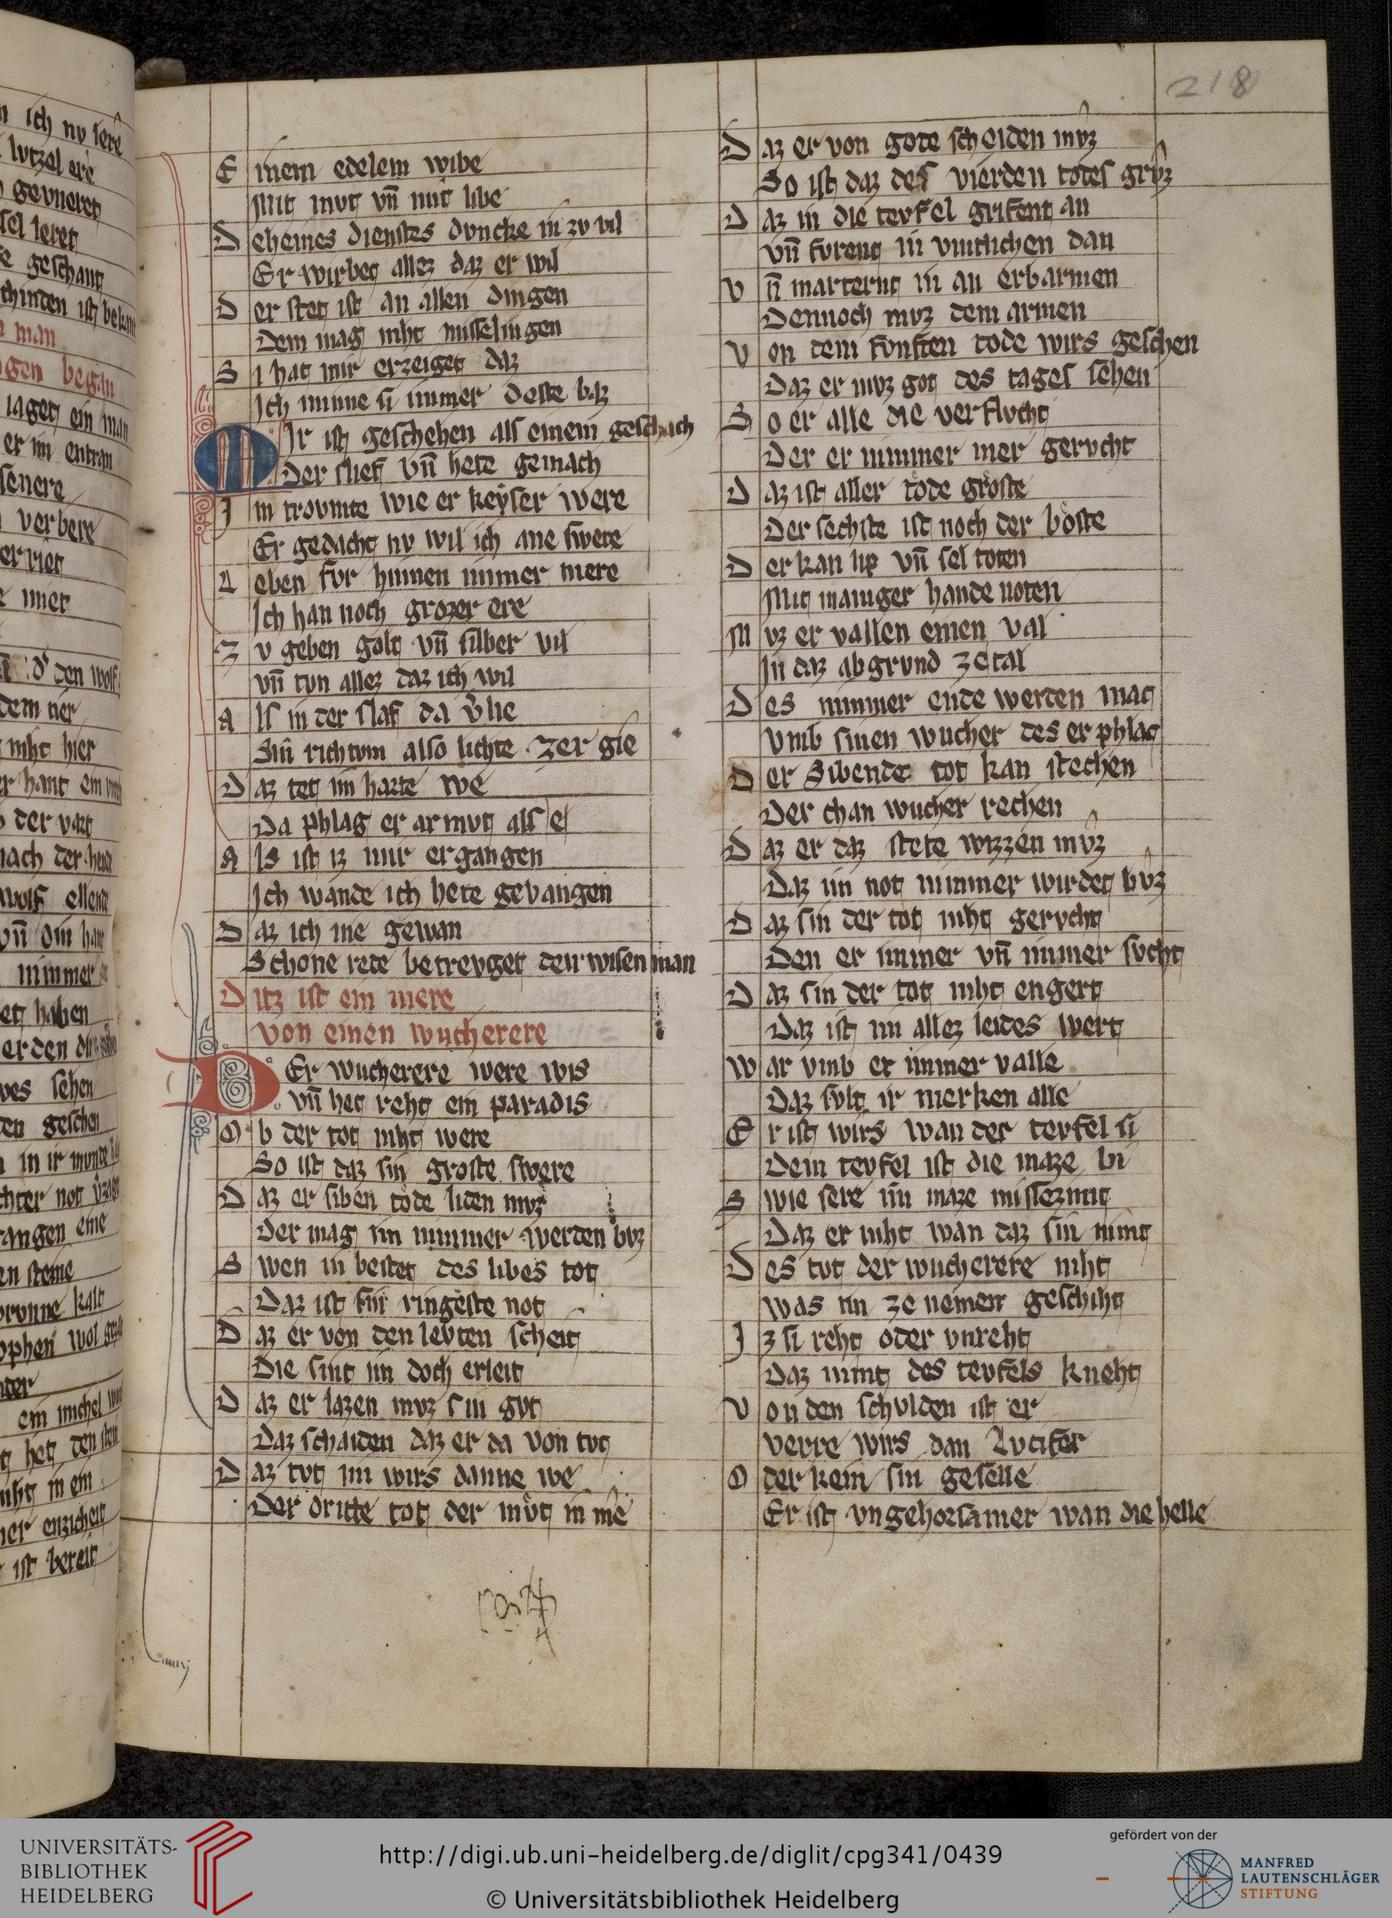 218
E inem edelem wibe
Mit mvt vn̄ mit libe
D eheines dienstes dvncke in zv vil
Er wirbet allez daz er wil
D er stet ist an allen dingen
Dem mag niht misselingen
S i hat mir erzeiget daz
Ich minne si immer deste baz
MIr ist geschehen als einem geschach
Der slief vn̄ hete gemach
I m trovmte wie er keyser were
Er gedacht nv wil ich ane swere
L eben fvr hinnen immer mere
Ich han noch grozer ere
Z v geben golt vn̄ silber vil
vn̄ tvn allez daz ich wil
A ls in der slaf da v̊lie
Sin richtvm also lichte zer gie
D az tet im harte we
Da phlag er armvt als e
A ls ist iz mir ergangen
Ich wande ich hete gevangen
D az ich nie gewan
Schone rede betrevget den wisen man
D itz ist ein mere
von einen wucherere
DEr wucherere were wis
vn̄ het reht ein paradis
O b der tot niht were
So ist daz sin groste swere
D az er siben tode liden mvz
Der mag im nimmer werden bvz
S wen in bestet des libes tot
Daz ist sin ringeste not
D az er von den levten scheit
Die sint im doch erleit
D az er lazen mvz sin gvt
Daz schaiden daz er da von tvt
D az tvt im wirs danne we
Der dritte tot der mv̊t in me
D az er von gote scheiden mvz
So ist daz des vierden totes grv̊z
D az in die tevfel grifent an
vn̄ fvrent in vintlichen dan
V n̄ marternt in an erbarmen
Dennoch mvz dem armen
V on dem fvnften tode wirs geschen
Daz er mvz got des tages sehen
S o er alle die verflvcht
Der er nimmer mer gervcht
D az ist aller tode groste
Der sechste ist noch der boste
D er kan lip vn̄ sel toten
Mit maniger hande noten
M vz er vallen einen val
In daz abgrvnd ze tal
D es nimmer ende werden mag
Vmb sinen wucher des er phlag
D er Sibende tot kan stechen
Der chan wucher rechen
D az er daz stete wizzen mv̊z
Daz im not nimmer wirdet bv̊z
D az sin der tot niht gervcht
Den er immer vn̄ immer svcht
D az sin der tot niht engert
Daz ist im allez leides wert
W ar vmb er immer valle
Daz svlt ir merken alle
E r ist wirs wan der tevfel si
Dem tevfel ist die maze bi
S wie sere im maze missezimt
Daz er niht wan daz sin nimt
D es tvt der wucherere niht
Was im ze nemen geschiht
I z si reht oder vnreht
Daz nimt des tevfels kneht
V on den schvlden ist er
verre wirs dan Lvcifer
O der kein sin geselle
Er ist vngehorsamer wan die helle
UNIVERSITÄTS-
BIBLIOTHEK
HEIDELBERG
http://digi.ub.uni-heidelberg.de/diglit/cpg341/0439
© Universitätsbibliothek Heidelberg
gefördert von der
MANFRED
LAUTENSCHLÄGER
STIFTUNG